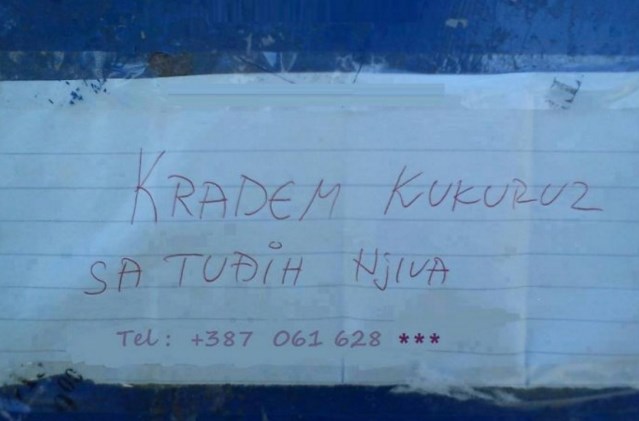 KRADEM KUKURUZ
SA TUĐIH NjIVA
Tel: +387 061 628 ***